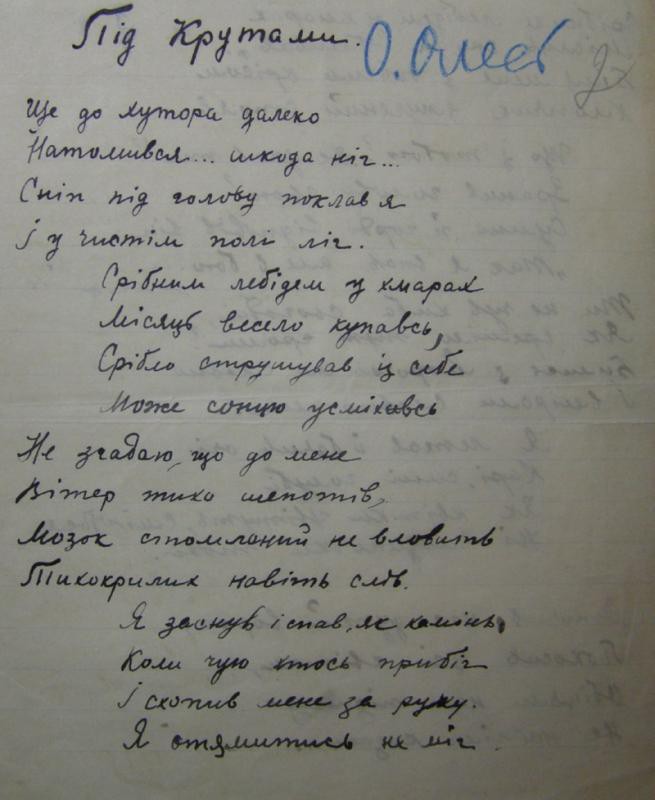 Під Крутами.
О. Олесь
Ще до хутора далеко
Натомився... шкода ніг...
Сніп під голову поклав я
І у чистім полі ліг.
Срібним лебідем у хмарах
Місяць весело купавсь,
Срібло струшував із себе
Може сонцю усміхавсь
Не згадаю, що до мене
Вітер тихо шепотів,
Мозок стомлений не вловить
Тихокрилих навіть слів.
Я заснув і спав, як камінь,
Коли чую хтось прибіг
І схопив мене за руку.
Я отямитись не міг.